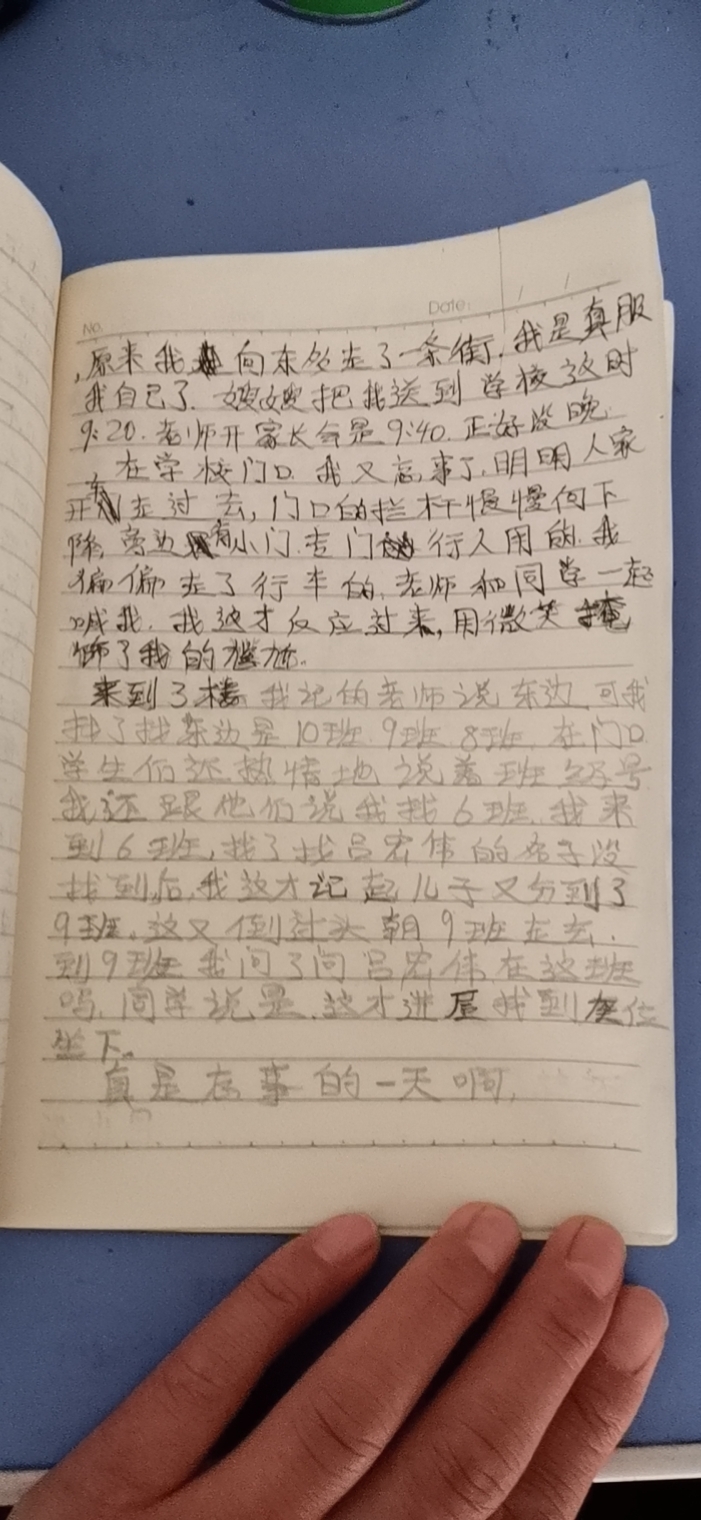 No.
Date:
,原来我向东处走了一条街.我是真服
我自己了.嫂嫂把我送到学校这时
9:20.老师开家长会是9:40.正好没晚.
在学校门口.我又忘事了.明明人家
开车走过去,门口的拦杆慢慢向下
降,旁边有小门.专门行人用的.我
偏偏走了行车的.老师和同学一起
喊我.我这才反应过来,用微笑掩
饰了我的尴尬。
来到3楼我记的老师说东边,可我
找了找东边是10班.9班.8班,在门口
学生们还热情地说着班级号
我还跟他们说我找6班.我来
到6班,找了找吕宏伟的名字没
找到后,我这才记起儿子又分到了
9班.这又倒过头朝9班走去.
到9班我问了问吕宏伟在这班
吗,同学说是.这才进屋找到座位
坐下。
真是忘事的一天啊,